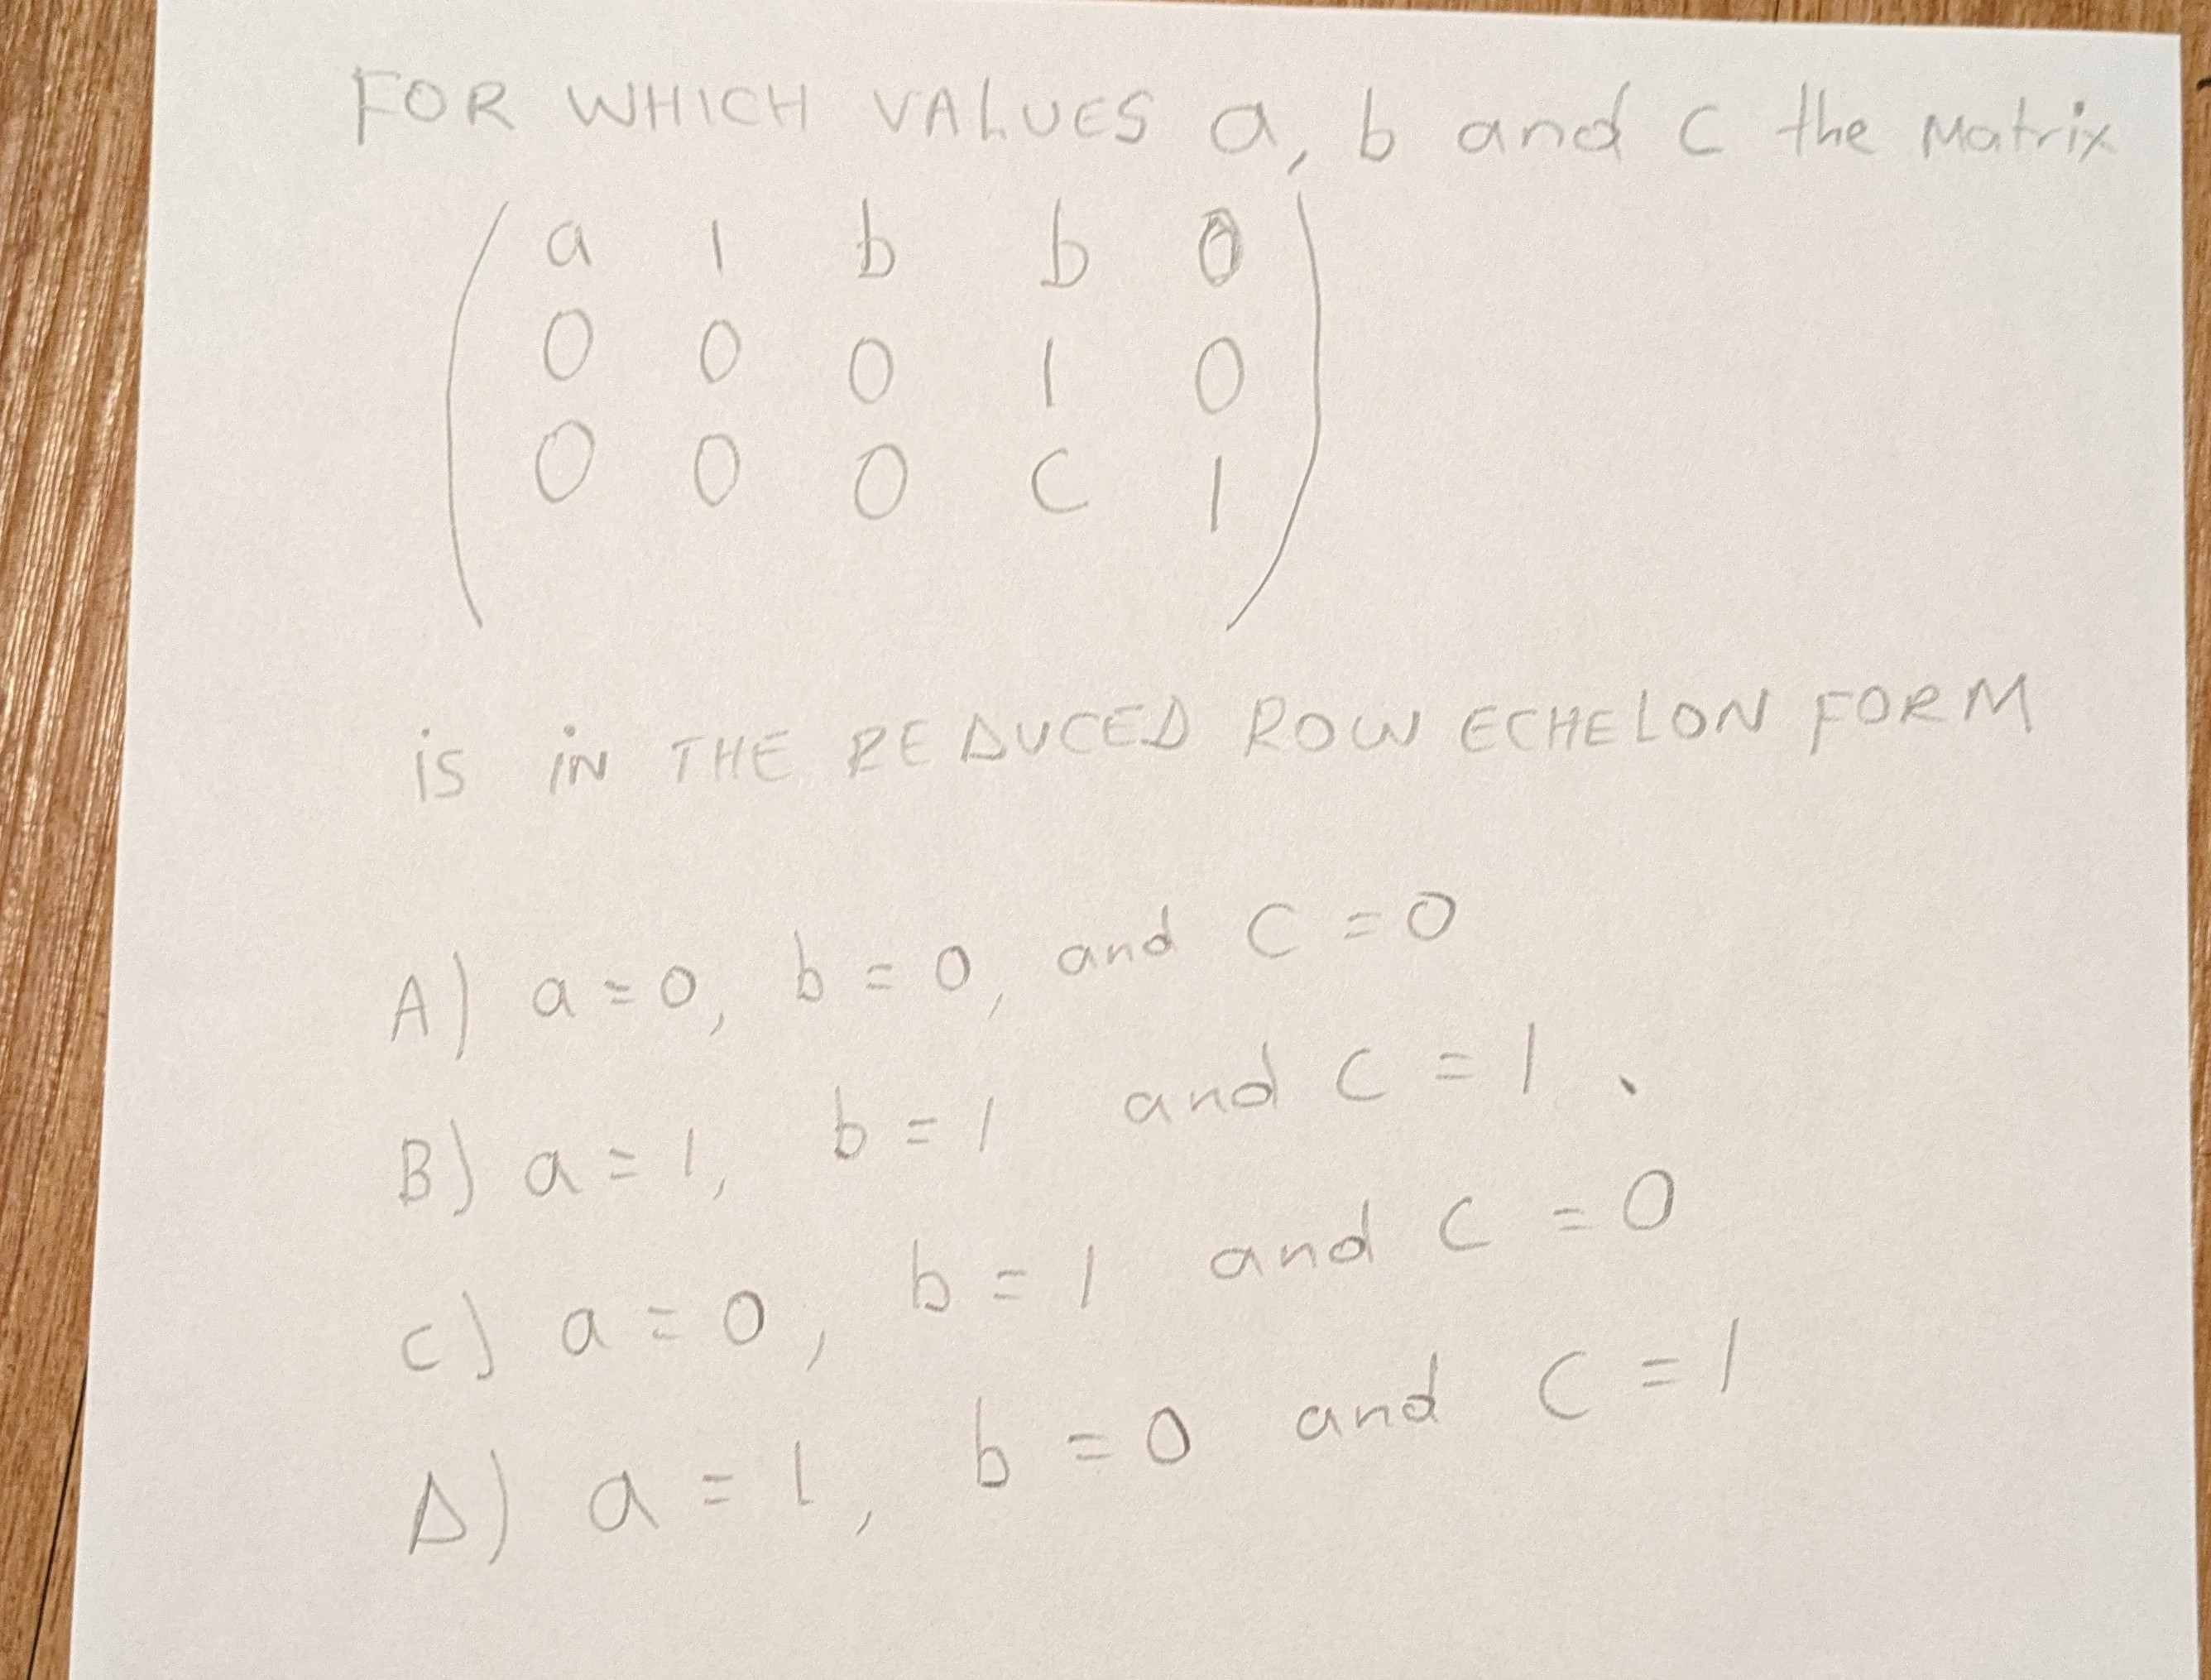 FOR WHICH VALUES a, b and c the Matrix
a 1 b b 0
0 0 0 1 0
0 0 0 c 1
is iN THE REDUCED ROW ECHELON FORM
A) a = 0, b = 0, and c = 0
B) a = 1, b = 1 and c = 1.
C) a = 0, b = 1 and c = 0
D) a = 1, b = 0 and c = 1